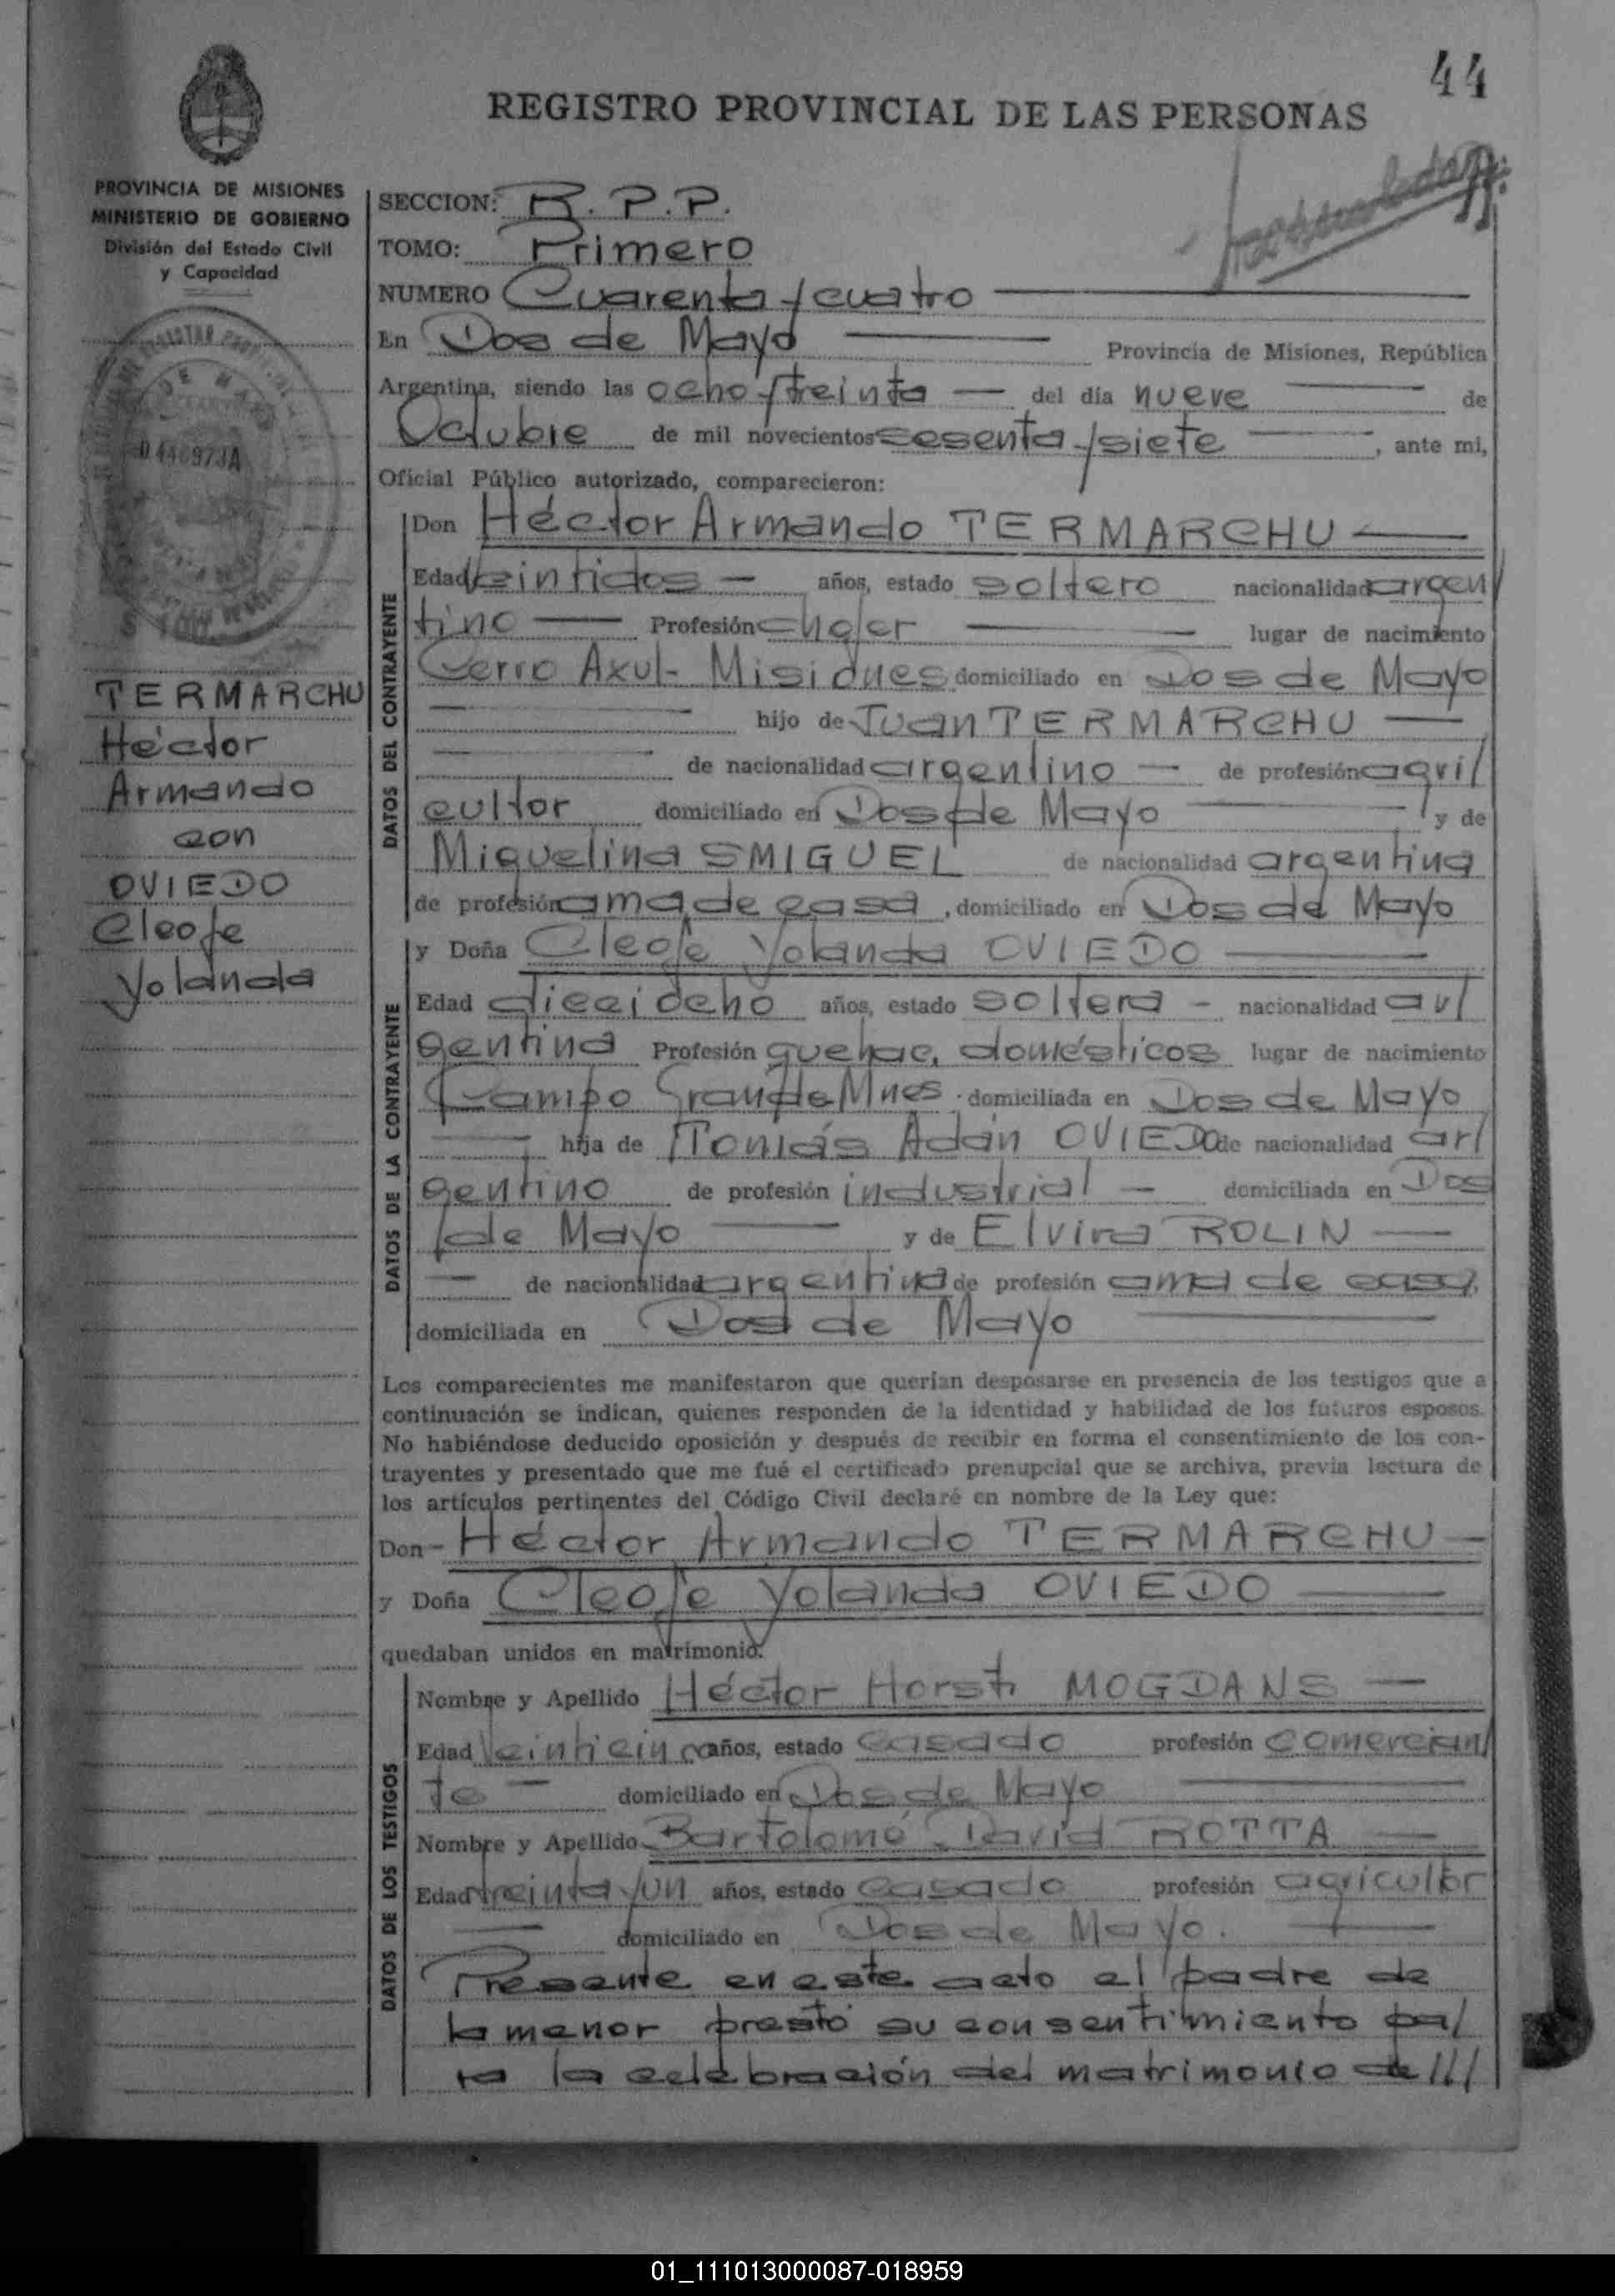 44
REGISTRO PROVINCIAL DE LAS PERSONAS
PROVINCIA DE MISIONES
MINISTERIO DE GOBIERNO
División del Estado Civil
y Capacidad
TERMARCHU
Héctor
Armando
con
OVIEDO
Cleofe
Yolanda
SECCION: R.P.P.
TOMO: Primero
NUMERO Cuarenta y cuatro
En Dos de Mayo Provincia de Misiones, República
Argentina, siendo las ocho y treinta del día nueve de
Octubre de mil novecientos sesenta y siete, ante mi,
Oficial Público autorizado, comparecieron:
DATOS DEL CONTRAYENTE
Don Héctor Armando TERMARCHU
Edad veintidos años, estado soltero nacionalidad argen/
tino Profesión chofer lugar de nacimiento
Cerro Azul- Misiones domiciliado en Dos de Mayo
hijo de Juan TERMARCHU
de nacionalidad argentino de profesión agri/
cultor domiciliado en Dos de Mayo y de
Miguelina SMIGUEL de nacionalidad argentina
de profesión ama de casa, domiciliado en Dos de Mayo
DATOS DE LA CONTRAYENTE
y Doña Cleofe Yolanda OVIEDO
Edad dieciocho años, estado soltera - nacionalidad ar/
gentina Profesión quehac. domésticos lugar de nacimiento
Campo Grande Mnes. domiciliada en Dos de Mayo
hija de Tomás Adán OVIEDO de nacionalidad ar/
gentino de profesión industrial domiciliada en Dos
/de Mayo y de Elvira ROLIN
de nacionalidad argentina de profesión ama de casa,
domiciliada en Dos de Mayo
Los comparecientes me manifestaron que querían desposarse en presencia de los testigos que a
continuación se indican, quienes responden de la identidad y habilidad de los futuros esposos.
No habiéndose deducido oposición y después de recibir en forma el consentimiento de los con-
trayentes y presentado que me fué el certificado prenupcial que se archiva, previa lectura de
los artículos pertinentes del Código Civil declaré en nombre de la Ley que:
Don Héctor Armando TERMARCHU
y Doña Cleofe Yolanda OVIEDO
quedaban unidos en matrimonio.
DATOS DE LOS TESTIGOS
Nombre y Apellido Héctor Horst MOGDANS
Edad veinticinco años, estado casado profesión comercian/
te domiciliado en Dos de Mayo
Nombre y Apellido Bartolomé David ROTTA
Edad treinta y un años, estado casado profesión agricultor
domiciliado en Dos de Mayo.
Presente en este acto el padre de
la menor prestó su consentimiento pa/
ra la celebración del matrimonio de ///
01_111013000087-018959